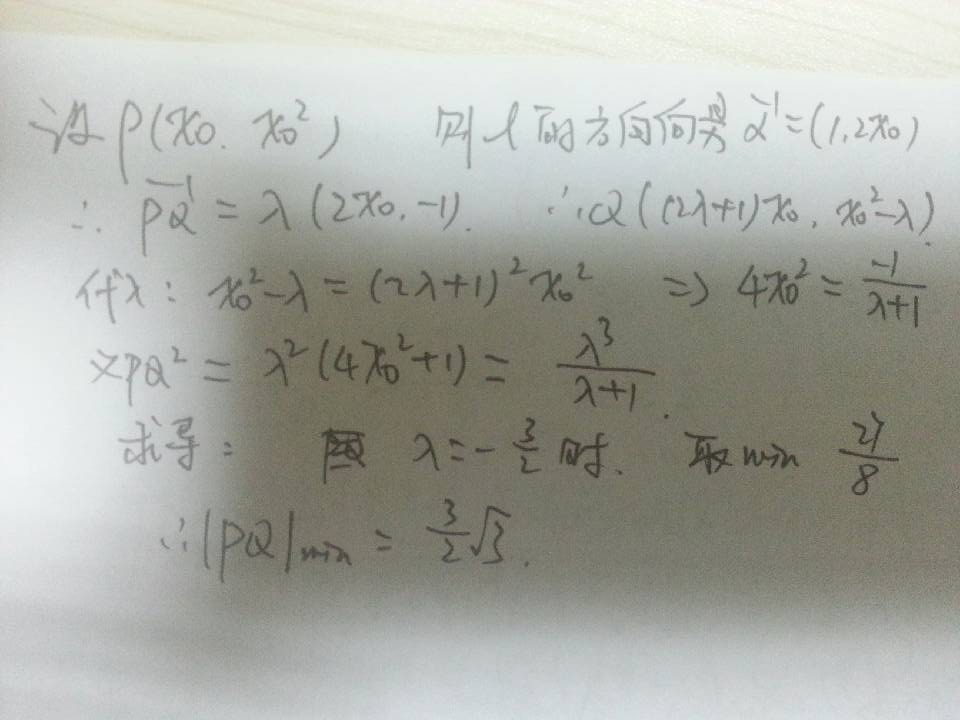 设P(x₀, x₀²) 则l的方向向量为 α⃗=(1,2x₀)
∴ PQ⃗ = λ(2x₀,-1). ∴Q((2λ+1)x₀, x₀²-λ).
代入: x₀²-λ = (2λ+1)²x₀² => 4x₀² = -1/(λ+1)
又PQ² = λ²(4x₀²+1) = λ³/(λ+1).
求导: λ=-3/2时. 取min 27/8
∴|PQ|min = 3/2√3.